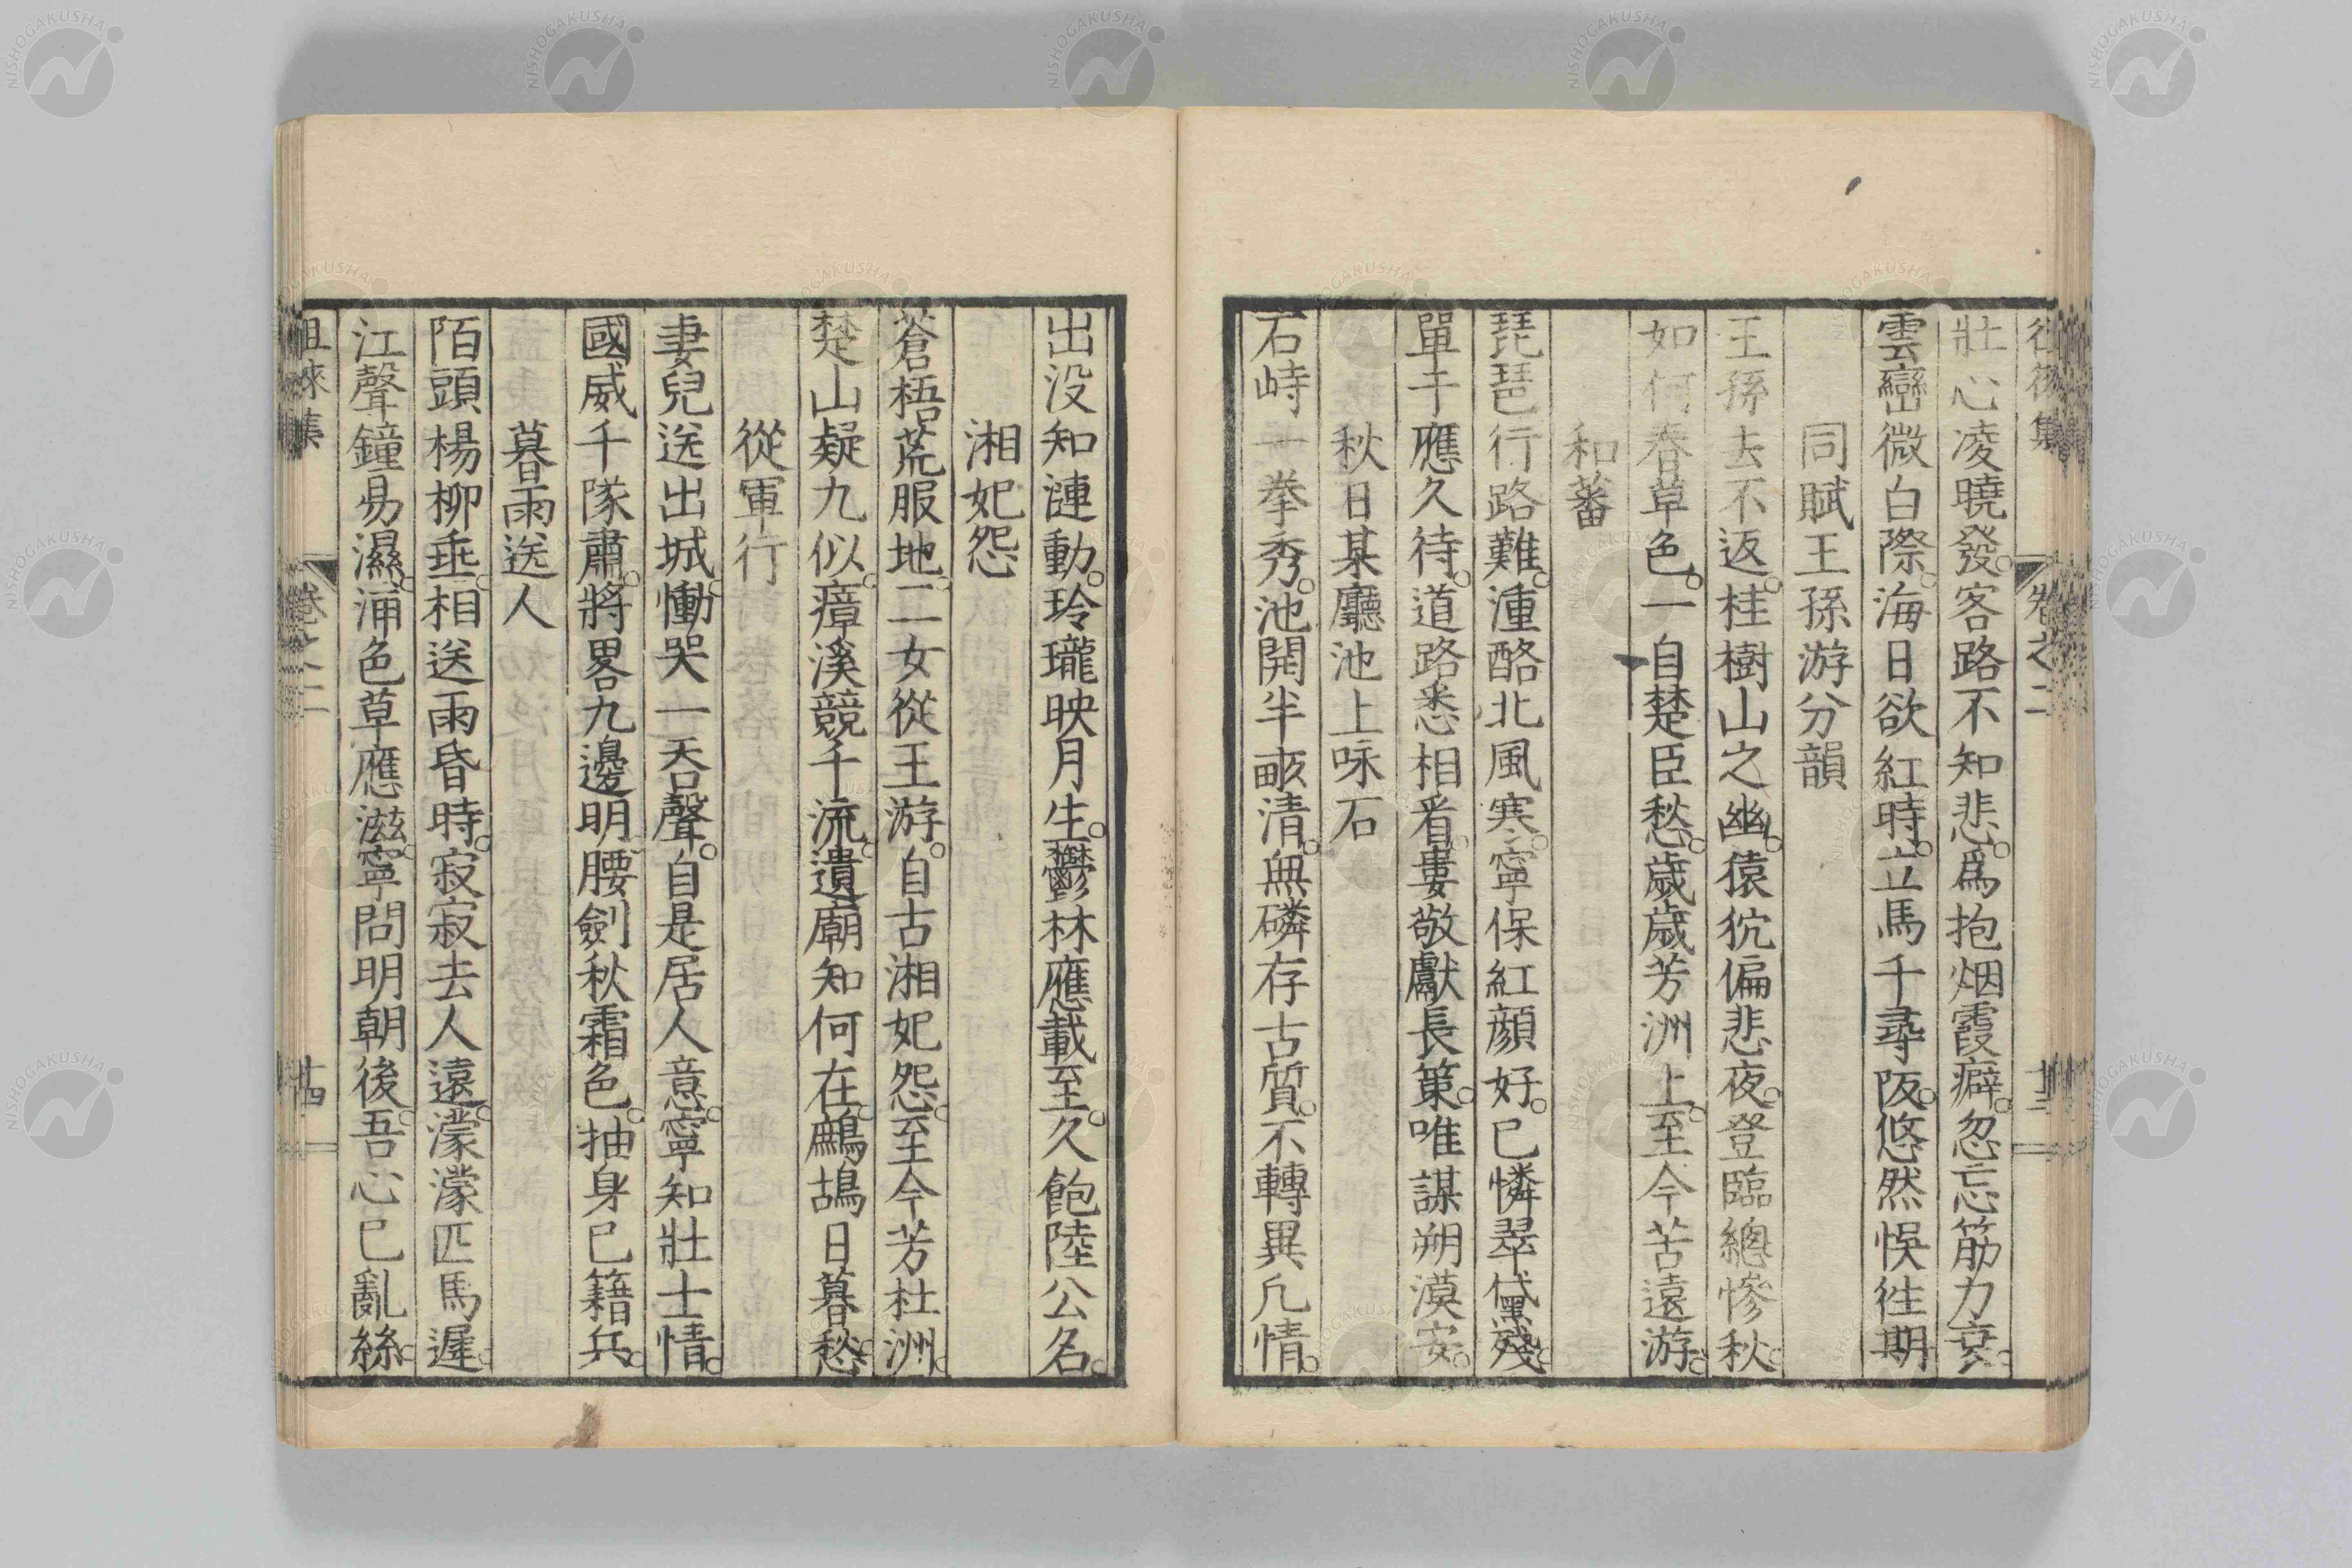 徂徠集 卷之二 十三
壯心凌曉發。客路不知悲。爲抱烟霞癖。忽忘筋力衰。
雲巒微白際。海日欲紅時。立馬千尋阪。悠然悞徃期
同賦王孫游分韻
王孫去不返。桂樹山之幽。猿狖偏悲夜。登臨總慘秋。
如何春草色。一自楚臣愁。歲歲芳洲上。至今苦遠游。
和蕃
琵琶行路難。湩酪北風寒。寧保紅顔好。已憐翠黛殘。
單于應久待。道路悉相看。婁敬獻長策。唯謀朔漠安。
秋日某廳池上咏石
石峙一拳秀。池開半畝清。無磷存古質。不轉異凡情。
出没知漣動。玲瓏映月生。鬱林應載至。久飽陸公名。
湘妃怨
蒼梧荒服地。二女從王游。自古湘妃怨。至今芳杜洲。
楚山疑九似。瘴溪競千流。遺廟知何在。鷓鴣日暮愁。
從軍行
妻兒送出城。慟哭一吞聲。自是居人意。寧知壯士情。
國威千隊肅。將畧九邊明。腰劍秋霜色。抽身已籍兵。
暮雨送人
陌頭楊柳垂。相送雨昏時。寂寂去人遠。濛濛匹馬遲。
江聲鐘易濕。涌色草應滋。寧問明朝後。吾心已亂絲。
徂徠集 卷之二 十四
NISHOGAKUSHA